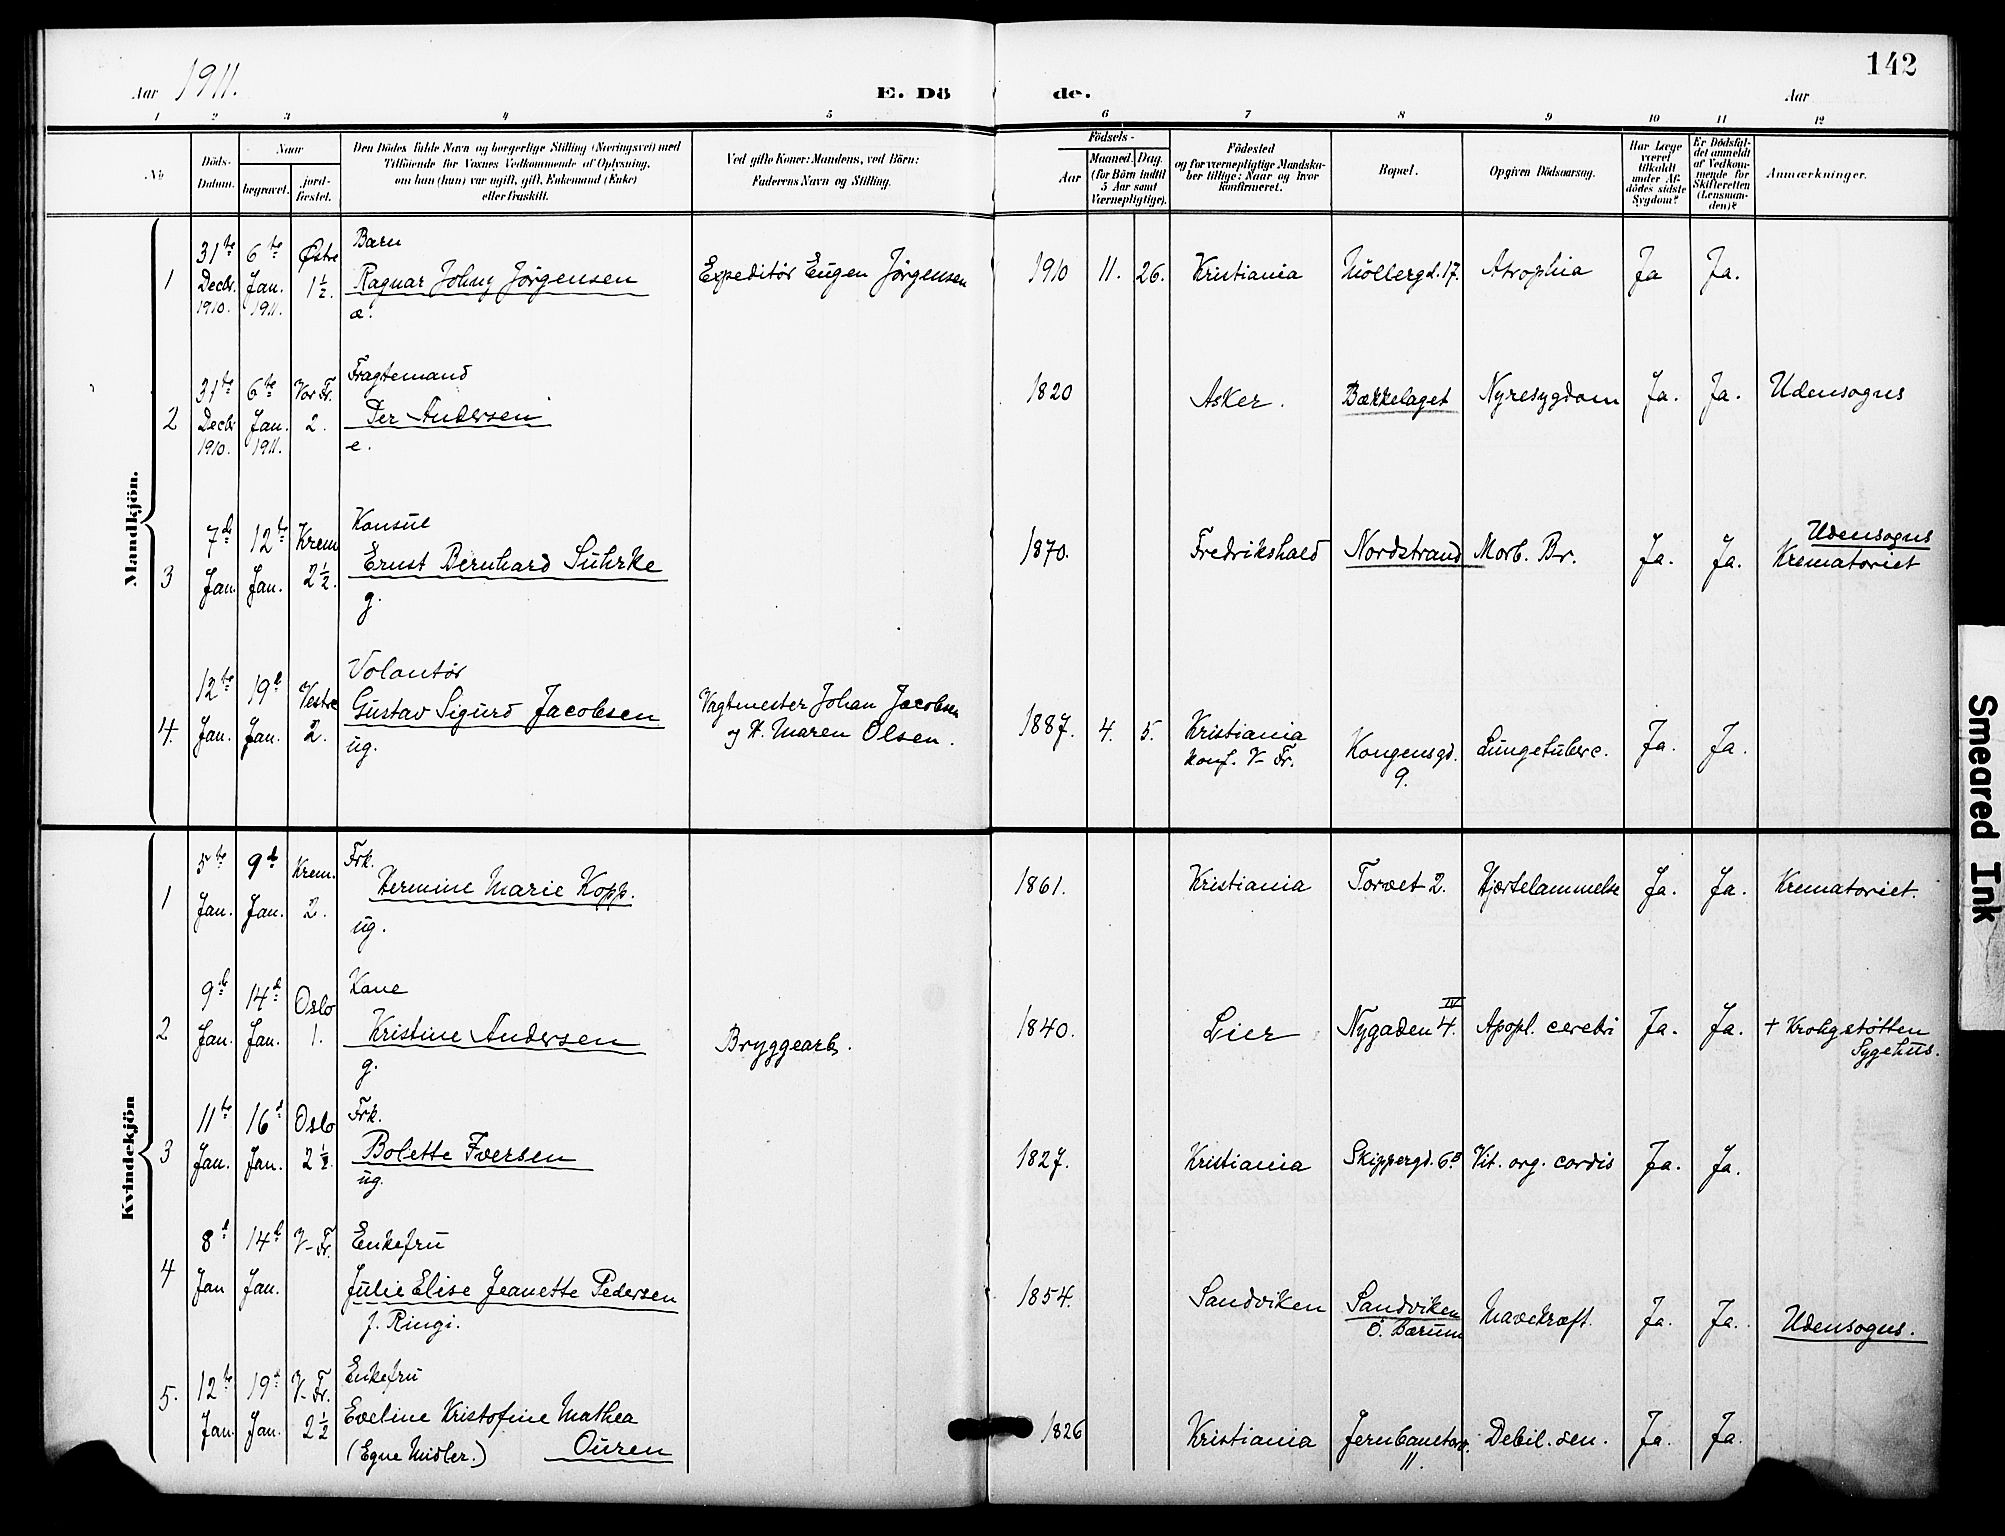 142
Aar 1911.
E. Dö de.
Aar
1 2 3 4 5 6 7 8 9 10 11 12
No
Döds-
Datum.
Naar
begravet.
jord-
fæstet.
Den Dödes fulde Navn og borgerlige Stilling (Næringsvei) med
Tilföiende for Voxnes Vedkommende af Oplysning,
om han (hun) var ugift, gift, Enkemand (Enke)
eller fraskilt.
Ved gifte Koner: Mandens, ved Börn:
Faderens Navn og Stilling.
Födsels-
Aar
Maaned. Dag.
(for Börn indtil
5 Aar samt
Værnepligtige).
Födested
og for værnepligtige Mandska-
ber tillige: Naar og hvor
konfirmeret.
Bopæl.
Opgiven Dödsaarsag.
Har Læge
været
tilkaldt
under Af-
dödes sidste
Sygdom?
Er Dödsfal-
det anmeldt
af Vedkom-
mende for
Skifteretten
(Lensman-
den)?
Anmærkninger.
Mandkjön.
1
31te Decbr. 1910.
6te Jan. 1911.
Østre 1½.
Barn
Ragnar Johny Jørgensen
æ.
Expeditør Eugen Jørgensen
1910 11. 26. Kristiania Möllergd. 17. Atrophia Ja Ja.
2
31te Decbr 1910.
6te Jan. 1911.
Vor Fr. 2.
Fragtemand
Per Andersen
e.
1820 Asker. Bækkelaget Nyresygdom Ja. Ja. Udensogns
3
7de Jan.
12te Jan.
Krem 2½.
Konsul
Ernst Bernhard Suhrke
g.
1870. Fredrikshald Nordstrand Morb. Br. Ja. Ja. Udensogns
Krematoriet
4.
12te Jan.
19d Jan.
Vestre 2.
Volontør
Gustav Sigurd Jacobsen
ug.
Vagtmester Johan Jacobsen
og H. Maren Olsen.
1887. 4. 5. Kristiania
Konf. V- Fr.
Kongensgd.
9.
Lungetuberc. Ja. Ja.
Kvindekjön
1
5te Jan.
9de Jan.
Krem. 2.
Frk.
Hermine Marie Kopp.
ug.
1861. Kristiania Torvet 2. Hjærtelammelse Ja. Ja. Krematoriet.
2
9de Jan.
14d Jan.
Oslo 1.
Kone
Kristine Andersen
g.
Bryggearb.
1840. Lier Nygaden 4. IV Apopl. cerebri Ja. Ja. + Krohgstøtten
Sygehus.
3
11te Jan.
16d Jan.
Oslo 2½.
Frk.
Bolette Iversen
ug.
1827. Kristiania Skippergd. 6B Vit. org. cordis Ja. Ja.
4
8d Jan
14d Jan.
V- Fr.
Enkefru
Julie Elise Jeanette Pedersen
f. Ringi.
1854. Sandviken Sandviken
Ö. Bærum
Mavekræft. Ja. Ja. Udensogns.
5.
12te Jan.
19d Jan.
V- Fr. 2½
Enkefru
Eveline Kristofine Mathea
(Egne Midler.) Ouren
1826 Kristiania Jernbanetorv.
11.
Debil. sen. Ja. Ja.
Smeared Ink